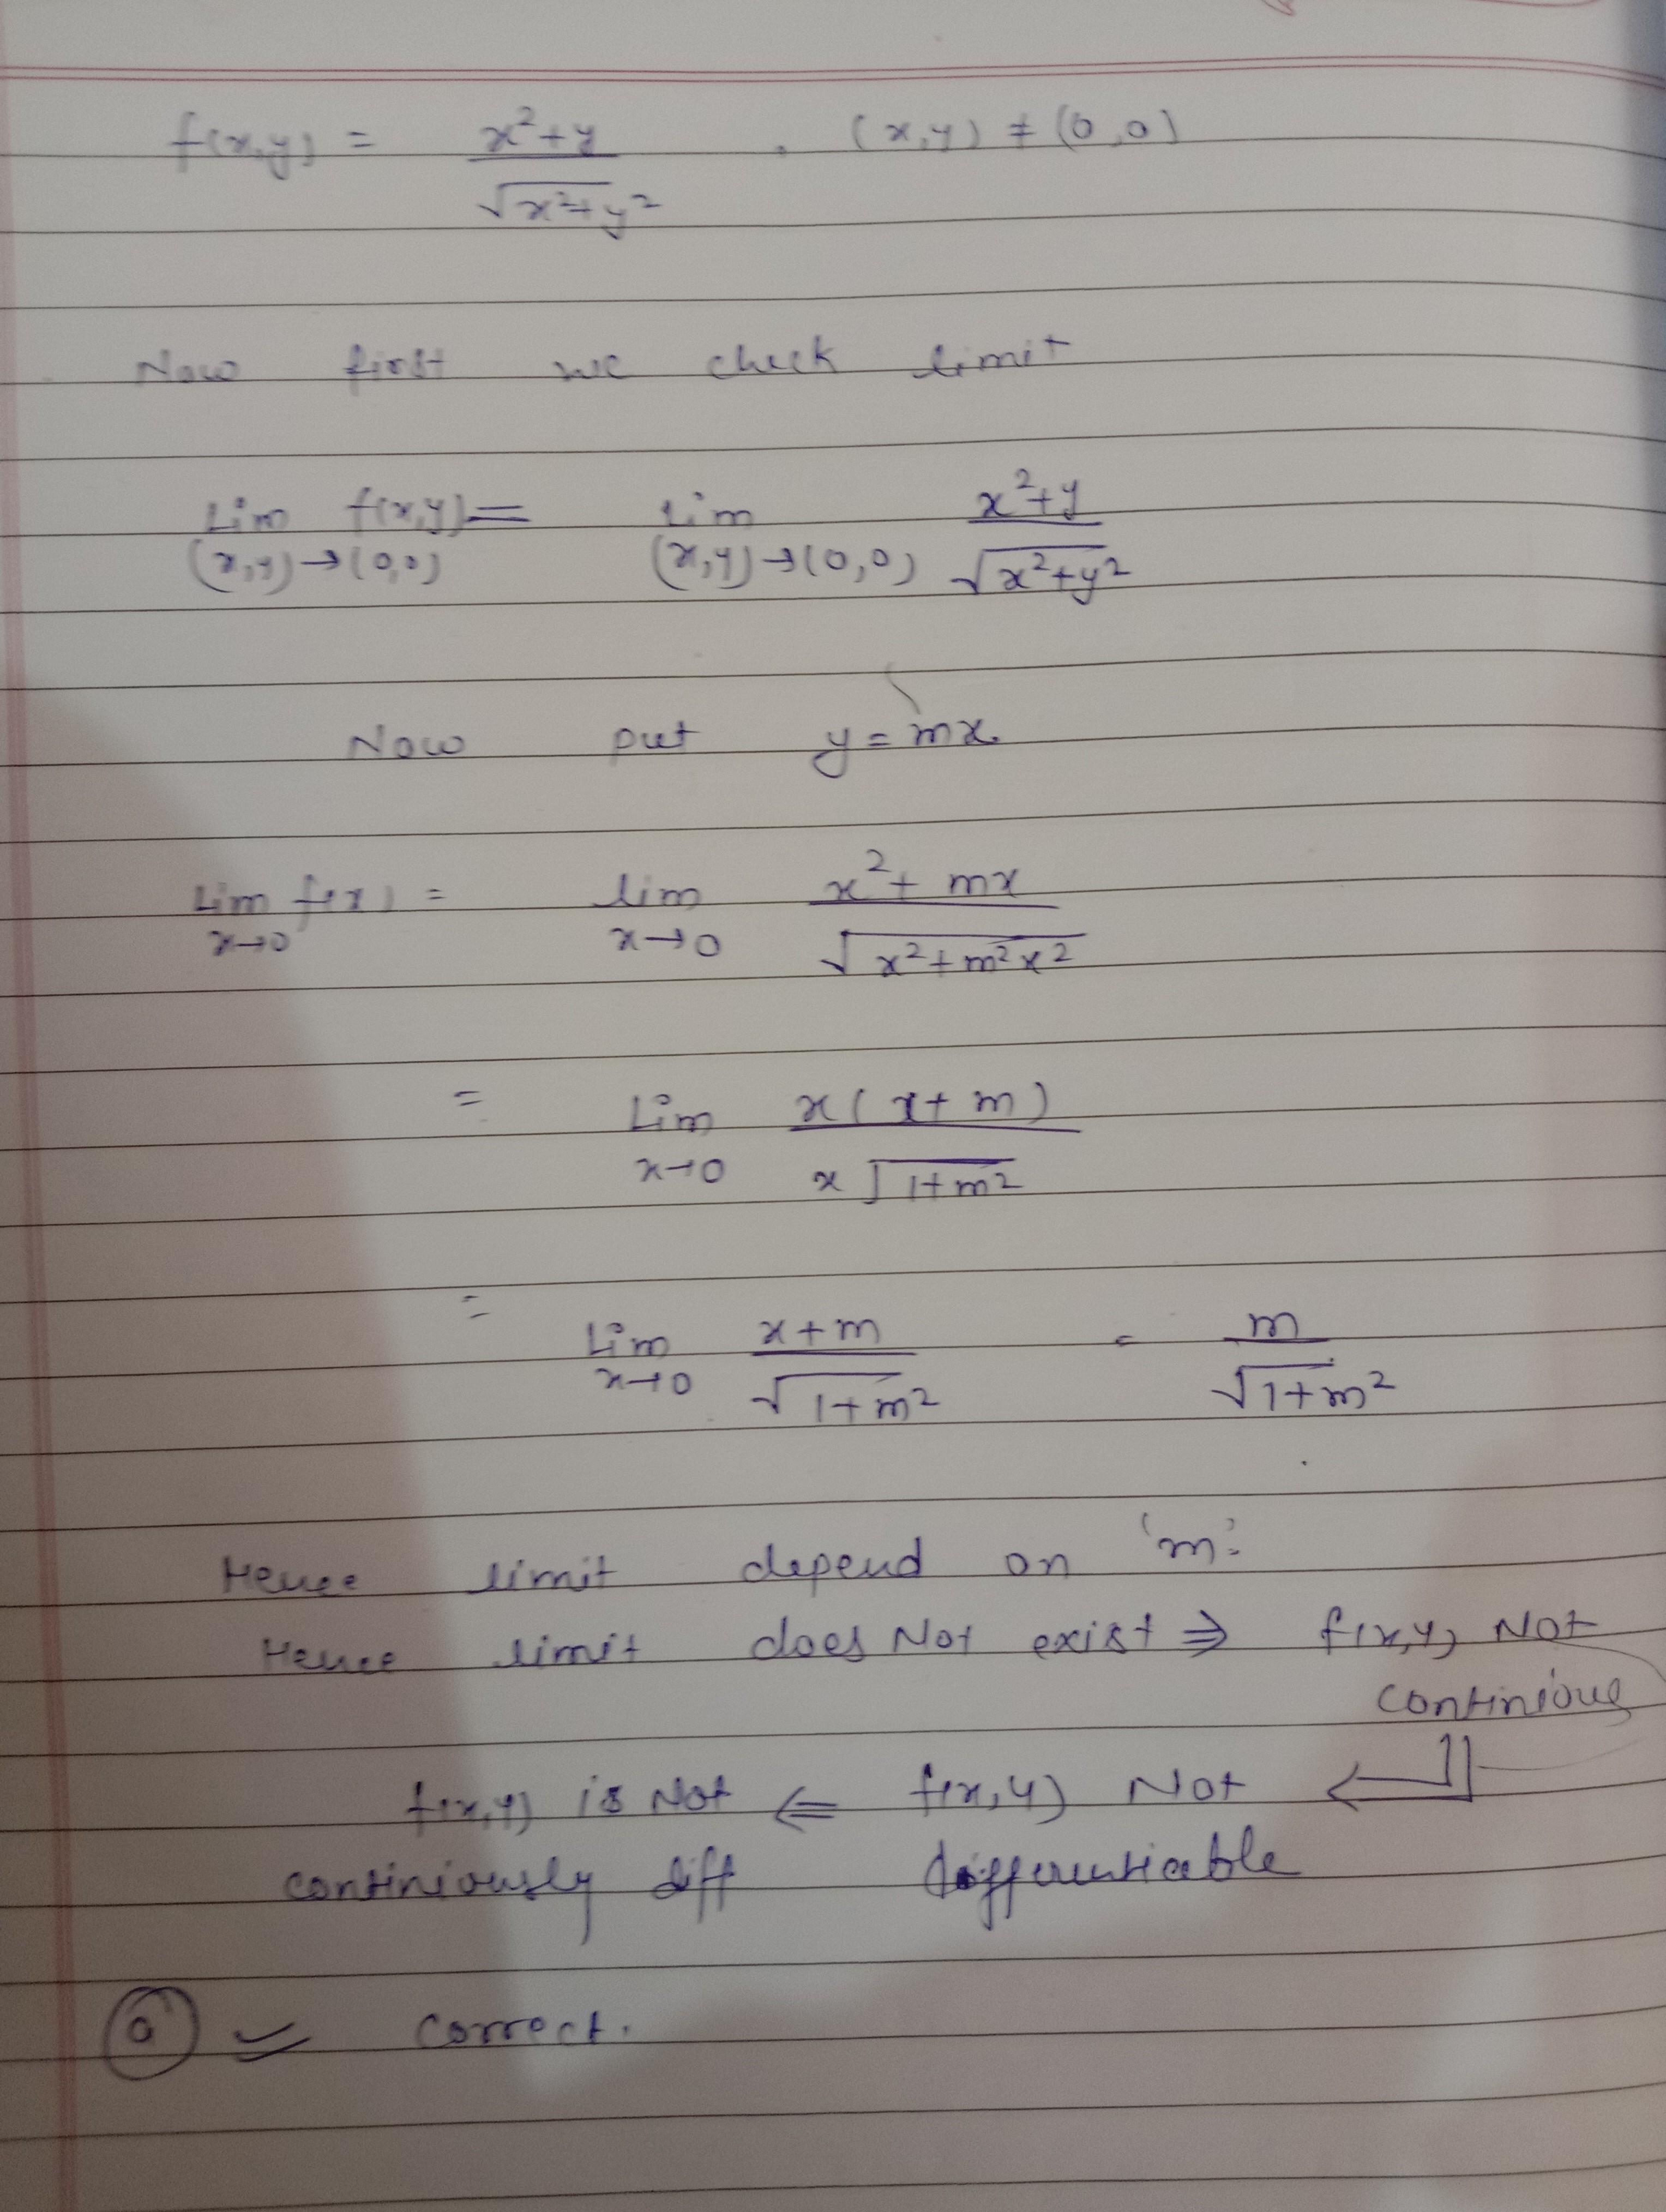 f(x,y) = x²+y / √x²+y² , (x,y) ≠ (0,0)
Now first we check limit
Lim (x,y)→(0,0) f(x,y) = Lim (x,y)→(0,0) x²+y / √x²+y²
Now put y = mx
Lim x→0 f(x) = lim x→0 x²+mx / √x²+m²x²
= Lim x→0 x(x+m) / x√1+m²
= Lim x→0 x+m / √1+m² = m / √1+m²
Hence limit depend on 'm'
Hence limit does Not exist ⇒ f(x,y) Not
continious
f(x,y) is Not ⇐ f(x,y) Not ⇐
continiously diff differentiable
a correct.